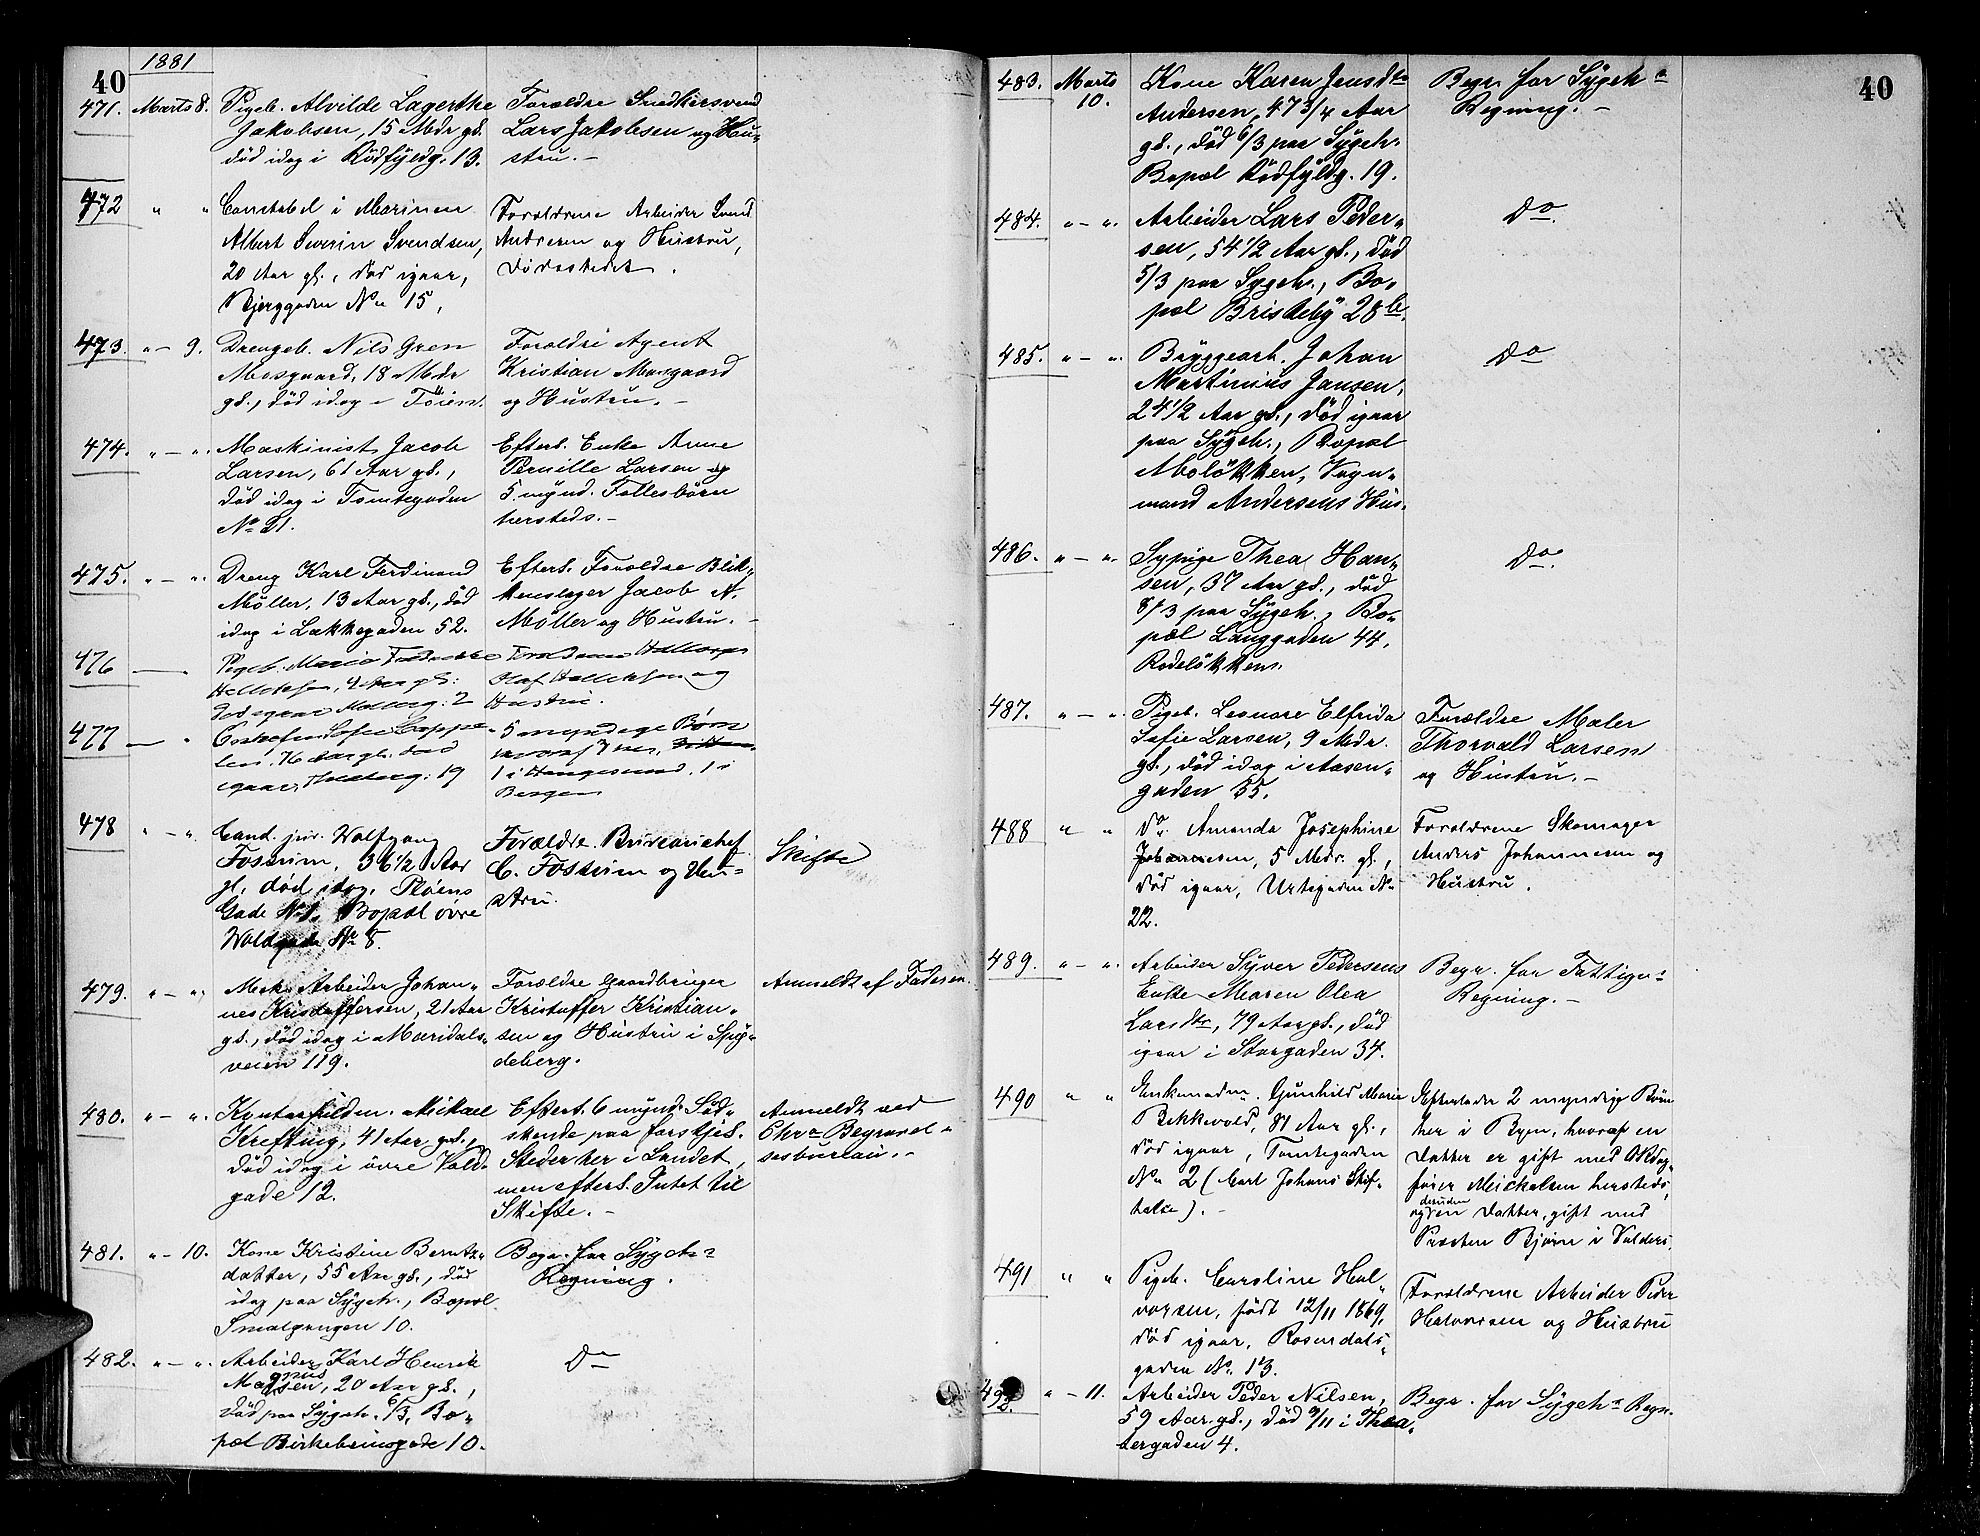 40
1881
471. Marts 8. Pigeb. Alvilde Lagerthe
Jakobsen, 15 Mdr gl.
död idag i Rödfyldg. 13.
Forældre Snedkersvend
Lars Jakobsen og Hu-
stru. -
472 " " Constabel i Marinen
Albert Severin Svendsen,
20 Aar gl., död igaar,
Bjerggaden No 15,
Forældrene Arbeider Svend
Andresen og Hustru,
Dødsstedet.
473. " - 9. Drengeb. Nils Gren
Mosgaard, 18 Mdr
gl., död idag i Töien.
Forældre Agent
Kristian Mosgaard
og Hustru. -
474. " - ". Maskinist Jacob
Larsen, 61 Aar gl.,
död idag i Tomtegaden
No 21.
Efterl. Enke Anne
Pernille Larsen og
5 mynd. Fællesbörn
hersteds. -
475. " - ". Dreng Karl Ferdinand
Möller, 13 Aar gl., död
idag i Lakkegaden 52.
Efterl. Forældre Blik-
kenslager Jacob A.
Möller og Hustru. -
476 Pigeb. Maria
Forældrene
Olaf og
Hustru.
477 Sofie
igaar 19
5 myndige Børn
hvoraf
1 i Haugesund, 1 i
Bergen
478 " - " Cand. jur. Wolfgang
Fossum, 36 1/2 Aar
gl. död idag, Pløens
Gade No 1. Bopæl øvre
Woldgade No 8.
Forældre Bureauchef
C. Fossum og Hu-
stru.
Skifte
479. " - " Mek. Arbeider Johan-
nes Kristoffersen, 21 Aar
gl., död idag i Maridals-
veien 119.
Forældre Gaardbruger
Kristoffer Kristian-
sen og Hustru i Spy-
deberg.
Anmeldt af Faderen.
480. " - ". Mikael
Krefting, 41 Aar gl.,
död idag i övre Vold-
gade 12.
Efterl. 6 mynd. Söd-
skende paa forskjel.
Steder her i Landet,
men efterl. Intet til
Skifte. -
Anmeldt ved
Chra Begravel-
sesbureau. -
481. " - 10. Kone Kristine Bernts-
datter, 55 Aar gl., död
idag paa Sygeh., Bopæl
Smalgangen 10.
Begr. for Sygeh.
Regning.
482. " - ". Arbeider Karl Henrik
Magnussen, 20 Aar gl.,
död paa Sygeh. 6/3, Bo-
pæl Birkebeinergade 10.
Do
40
483. Marts
10.
Kone Karen Jensdtr
Andersen, 47 3/4 Aar
gl., död 6/3 paa Sygeh.
Bopæl Rödfyldg. 19.
Begr. for Sygeh
Regning. -
484. " - ". Arbeider Lars Peder-
sen, 54 1/2 Aar gl., död
5/3 paa Sygeh., Bo-
pæl Briskeby 28b.
Do
485. " - ". Bryggearb. Johan
Martinius Jansen,
24 1/2 Aar gl., död igaar
paa Sygeh., Bopæl
Aboløkken, Vogn-
mand Andersens Hus.
Do
486. " - ". Sypige Thea Han-
sen, 37 Aar gl., död
8/3 paa Sygeh., Bo-
pæl Langgaden 44,
Rodeløkken.
Do
487. " - ". Pigeb. Leonore Elfrida
Sofie Larsen, 9 Mdr.
gl., död idag i Aasen-
gaden 55.
Forældre Maler
Thorvald Larsen
og Hustru. -
488 " " Do. Amanda Josephine
Johannesen, 5 Mdr. gl.,
död igaar, Urtegaden No
22.
Forældrene Skomager
Anders Johannesen og
Hustru.
489. " - ". Arbeider Syver Pedersens
Enke Maren Olea
Larsdtr, 79 Aar gl., död
igaar i Storgaden 34.
Begr. for Fattigv
Regning. -
490 " " Enkemadm. Gunhild Marie
Bekkevold, 81 Aar gl.,
död igaar, Tomtegaden
No 2 (Carl Johans Stif-
telse). -
Efterlader 2 myndige Børn
her i Byen, hvoraf en
Datter er gift med
Mickelsen hersteds,
desuden
og en Datter, gift med
Præsten Bjørn i Valders,
491 " " Pigeb. Caroline Hal-
vorsen, født 12/11 1869,
död igaar, Rosendals-
gaden No. 13.
Forældrene Arbeider Peder
Halvorsen og Hustru
492. " - 11. Arbeider Peder Nilsen,
59 Aar. gl., död 9/11 i Thea-
tergaden 4.
Begr. for Sygeh Regn.